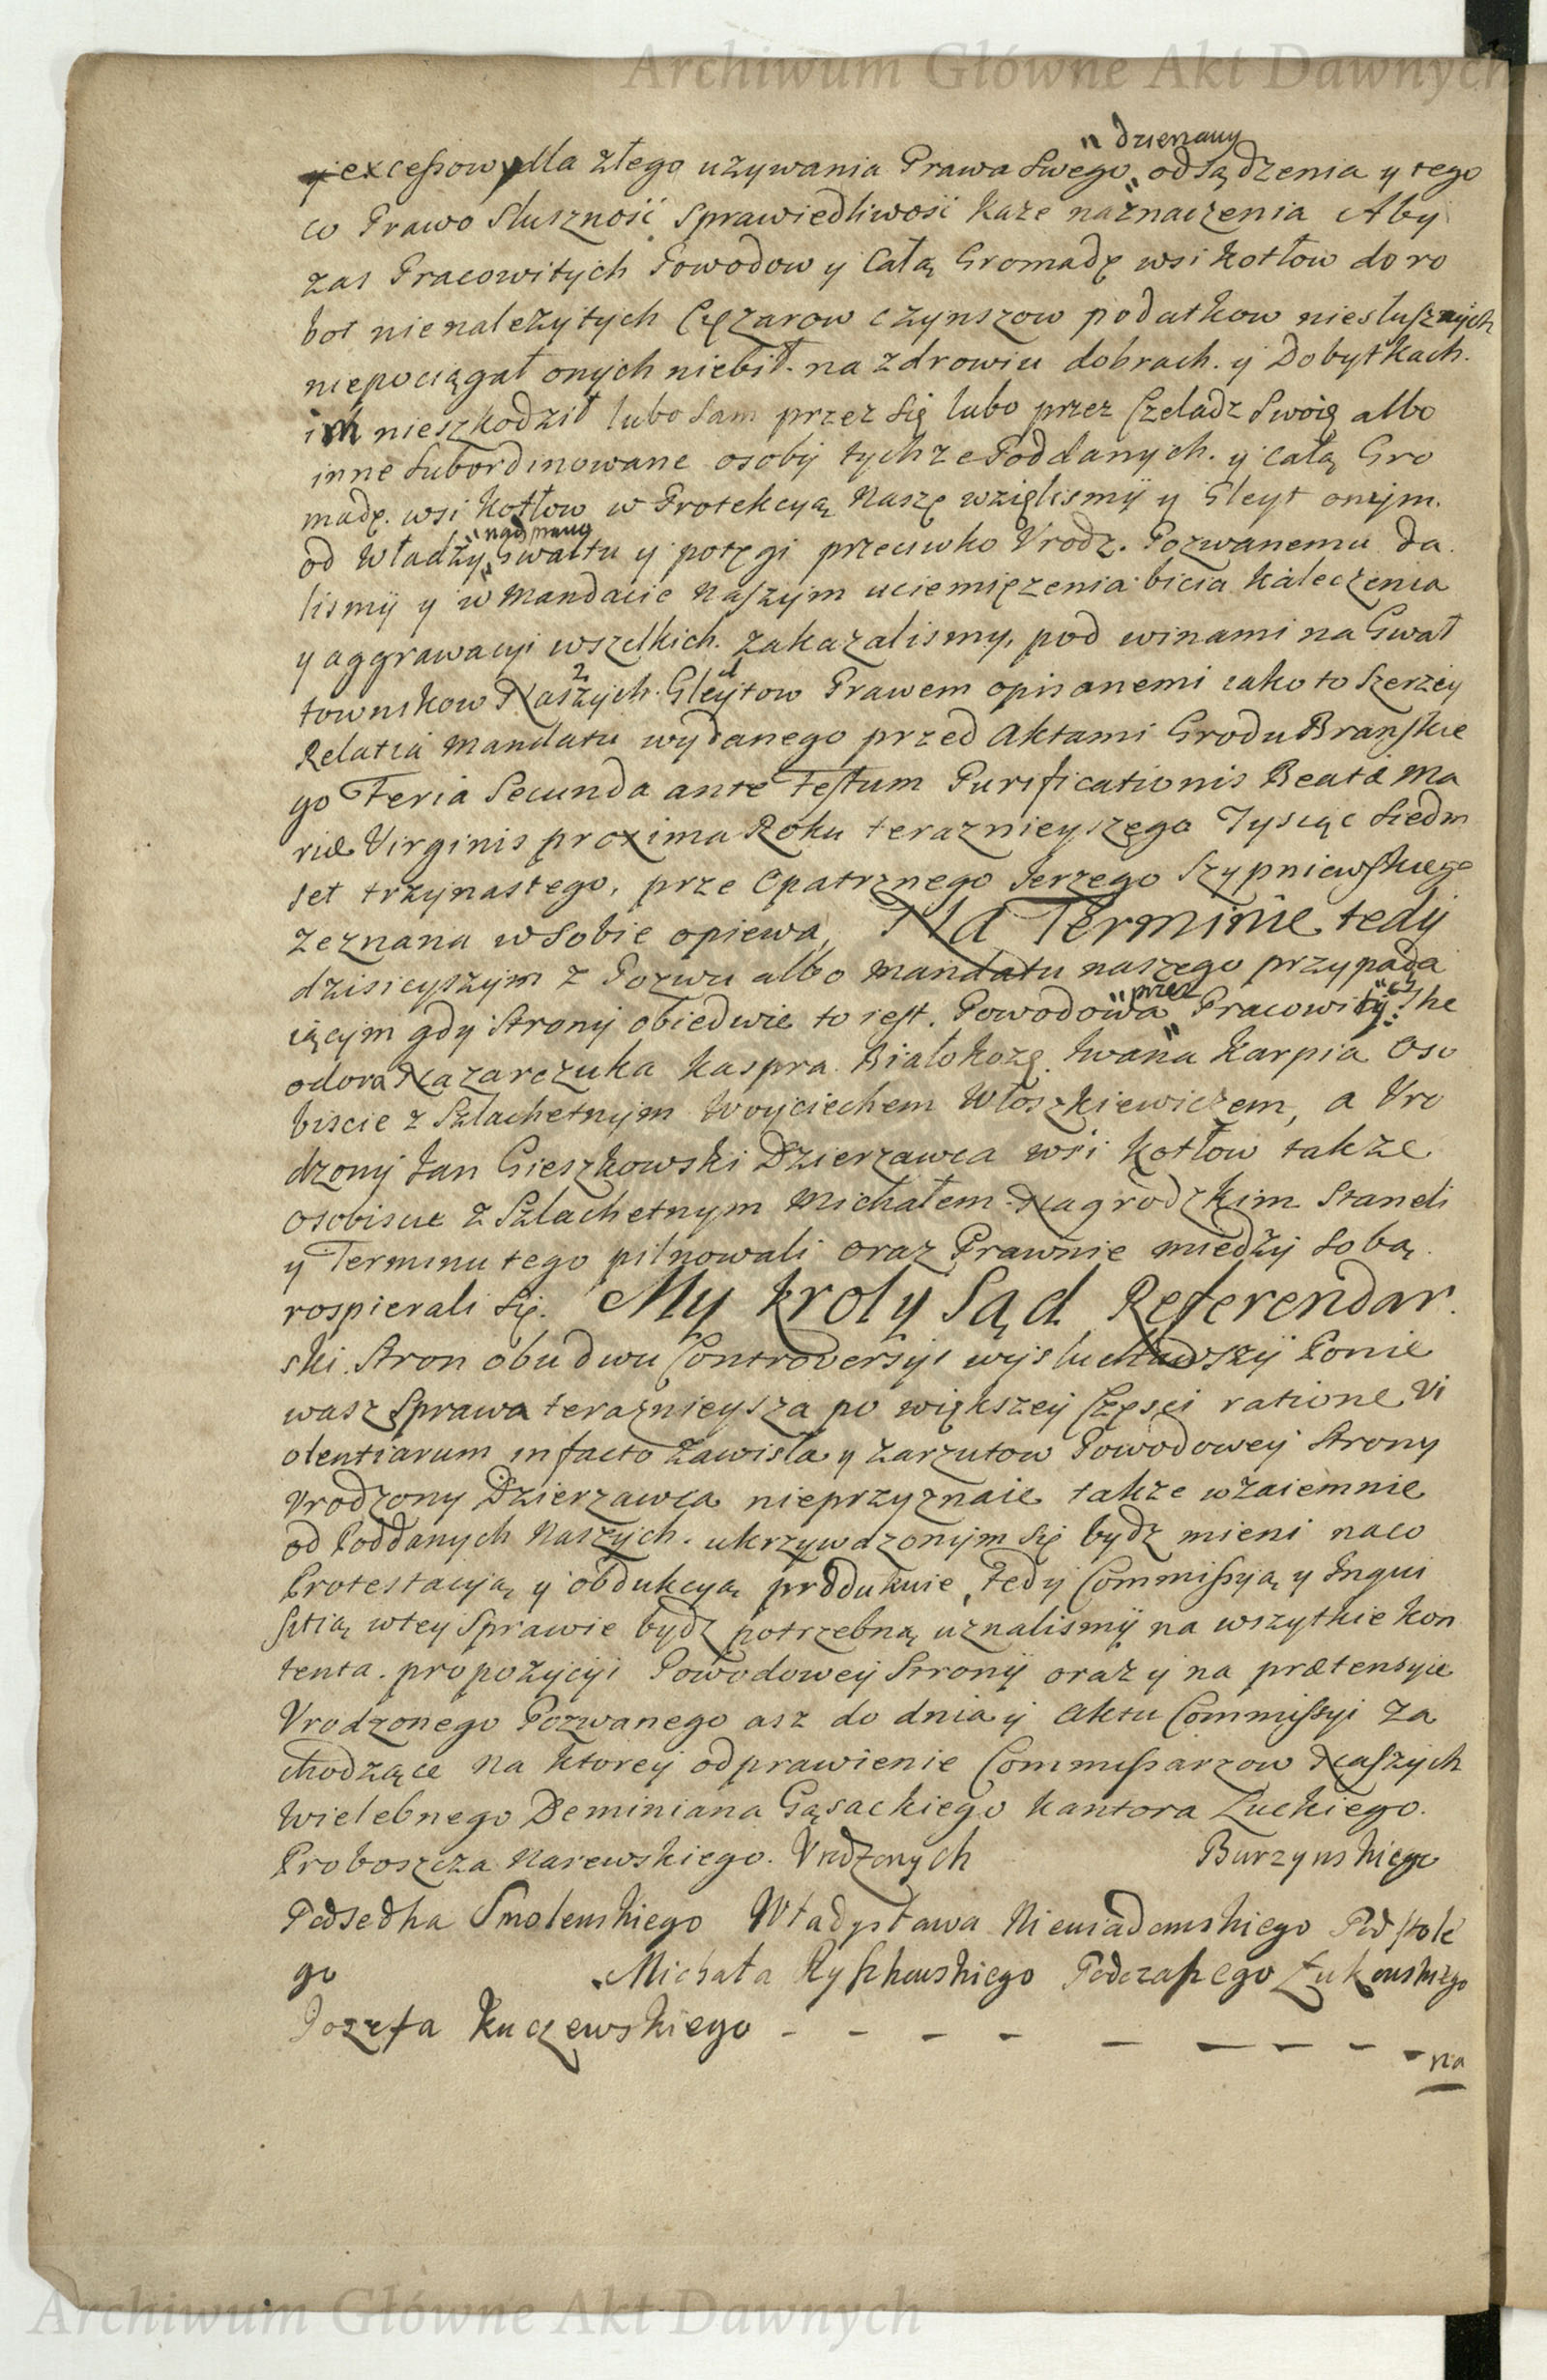 Archiwum Główne Akt Dawnych
" dzierzawy
y excessow dla złego uzywania Prawa Swego " odsądzenia y tego
co Prawo Słuszność Sprawiedliwość kaze naznaczenia Aby
zas Pracowitych Powodow y Całą Gromadę wsi Kotłow do ro
bot nienalezytych Cięzarow czynszow podatkow niesłusznych
niepociągał onych niebił. na zdrowiu dobrach. y Dobytkach.
im nieszkodził lubo Sam przez Się lubo przez Czeladz Swoię albo
inne Subordinowane osoby tychze Poddanych. y całą Gro
madę. wsi Kotłow w Protekcyą Naszę wzięlismy y Gleyt onym.
" nagannego
od Władzy " Gwałtu y potęgi przeciwko Vrodz. Pozwanemu da
lismy y w Mandacie Naszym uciemięzenia bicia kaleczenia
y aggrawacyi wszelkich. zakazalismy, pod winami na Gwał
townikow Naszych. Gleytow Prawem opisanemi iako to Szerzey
Relatia Mandatu wydanego przed Aktami Grodu Branskie
go Feria Secunda ante Festum Purificationis Beatæ Ma
riæ Virginis proxima Roku teraznieyszego Tysiąc Siedm
set trzynastego, prze Opatrznego Jerzego Szypniewskiego
zeznana w Sobie opiewa, Na Terminie tedy
dzisieyszym z Pozwu albo Mandatu naszego przypada
" przez
iącym gdy Strony obiedwie to iest. Powodowa " Pracowity: The
odora Nazarczuka Kaspra Białokozę. Iwana Karpia Oso
biscie z Szlachetnym Woyciechem Włoszkiewiczem, a Vro
dzony Jan Cieszkowski Dzierzawca wsi Kotłow takze
osobiscie z Szlachetnym Michałem Nagrodzkim Staneli
y Terminu tego pilnowali oraz Prawnie miedzy Sobą
rospierali Się. My Kroly Sąd Referendar.
ski Stron obudwu Controversyi wysłuchawszy Ponie
wasz Sprawa teraznieysza po większey Częsci ratione Vi
olentiarum in facto zawisła y zarzutow Powodowey Strony
Vrodzony Dzierzawca nieprzyznaie takze wzaiemnie
od Poddanych Naszych. ukrzywdzonym Się bydz mieni naco
Protestacyią y obdukcyą produkuie, tedy Commissyią y Inqui
sitią wtey Sprawie bydz potrzebną uznalismy na wszytkie kon
tenta. propozycyi Powodowey Strony oraz y na prætensyie
Vrodzonego Pozwanego asz do dnia y Aktu Commissyi za
chodzące Na ktorey odprawienie Commissarzow Naszych
Wielebnego Deminiana Gąsackiego Kantora Łuckiego.
Proboszcza Narewskiego. Vrodzonych Burzynskiego
Podsedka Smolenskiego Władysława Niewiadomskiego Podstole
go Michała Ryszkowskiego Podczaszego Łukowskiego
Jozefa Kuczewskiego - - - - - - - - -
na
Archiwum Główne Akt Dawnych